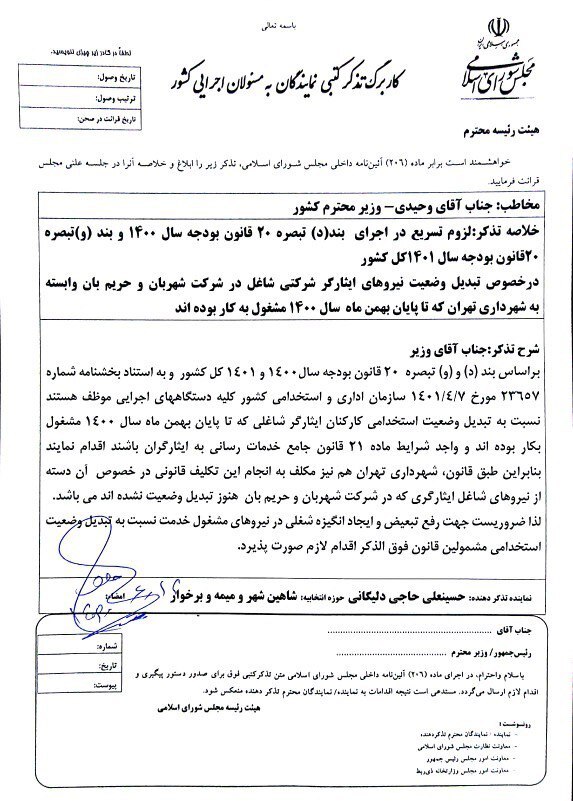 باسمه تعالی
جمهوری اسلامی ایران
مجلس شورای اسلامی
کاربرگ تذکر کتبی نمایندگان به مسئولان اجرایی کشور
لطفاً در کادر زیر چیزی ننویسید.
تاریخ وصول:
ترتیب وصول:
تاریخ قرائت در صحن:
هیئت رئیسه محترم
خواهشمند است برابر ماده (۲۰۶) آئین‌نامه داخلی مجلس شورای اسلامی، تذکر زیر را ابلاغ و خلاصه آنرا در جلسه علنی مجلس
قرائت فرمایید.
مخاطب: جناب آقای وحیدی– وزیر محترم کشور
خلاصه تذکر:لزوم تسریع در اجرای بند(د) تبصره ۲۰ قانون بودجه سال ۱۴۰۰ و بند (و)تبصره
۲۰قانون بودجه سال ۱۴۰۱کل کشور
درخصوص تبدیل وضعیت نیروهای ایثارگر شرکتی شاغل در شرکت شهربان و حریم بان وابسته
به شهرداری تهران که تا پایان بهمن ماه سال ۱۴۰۰ مشغول به کار بوده اند
شرح تذکر:جناب آقای وزیر
براساس بند (د) و (و) تبصره ۲۰ قانون بودجه سال۱۴۰۰ و ۱۴۰۱ کل کشور و به استناد بخشنامه شماره
۲۳۶۵۷ مورخ ۱۴۰۱/۴/۷ سازمان اداری و استخدامی کشور کلیه دستگاههای اجرایی موظف هستند
نسبت به تبدیل وضعیت استخدامی کارکنان ایثارگر شاغلی که تا پایان بهمن ماه سال ۱۴۰۰ مشغول
بکار بوده اند و واجد شرایط ماده ۲۱ قانون جامع خدمات رسانی به ایثارگران باشند اقدام نمایند
بنابراین طبق قانون، شهرداری تهران هم نیز مکلف به انجام این تکلیف قانونی در خصوص آن دسته
از نیروهای شاغل ایثارگری که در شرکت شهربان و حریم بان هنوز تبدیل وضعیت نشده اند می باشد.
لذا ضروریست جهت رفع تبعیض و ایجاد انگیزه شغلی در نیروهای مشغول خدمت نسبت به تبدیل وضعیت
استخدامی مشمولین قانون فوق الذکر اقدام لازم صورت پذیرد.
نماینده تذکر دهنده: حسینعلی حاجی دلیگانی حوزه انتخابیه: شاهین شهر و میمه و برخوار امضاء:
جناب آقای ........................
رئیس‌جمهور/ وزیر محترم ........................
شماره:
تاریخ:
پیوست:
باسلام واحترام، در اجرای ماده (۲۰۶) آئین‌نامه داخلی مجلس شورای اسلامی متن تذکرکتبی فوق برای صدور دستور پیگیری و
اقدام لازم ارسال می‌گردد. مستدعی است نتیجه اقدامات به نماینده/ نمایندگان محترم تذکر دهنده منعکس شود.
هیئت رئیسه مجلس شورای اسلامی
رونوشت:
- نماینده - نمایندگان محترم تذکردهنده
- معاونت نظارت مجلس شورای اسلامی
- معاونت امور مجلس رئیس جمهور
- معاونت امور مجلس وزارتخانه ذی‌ربط